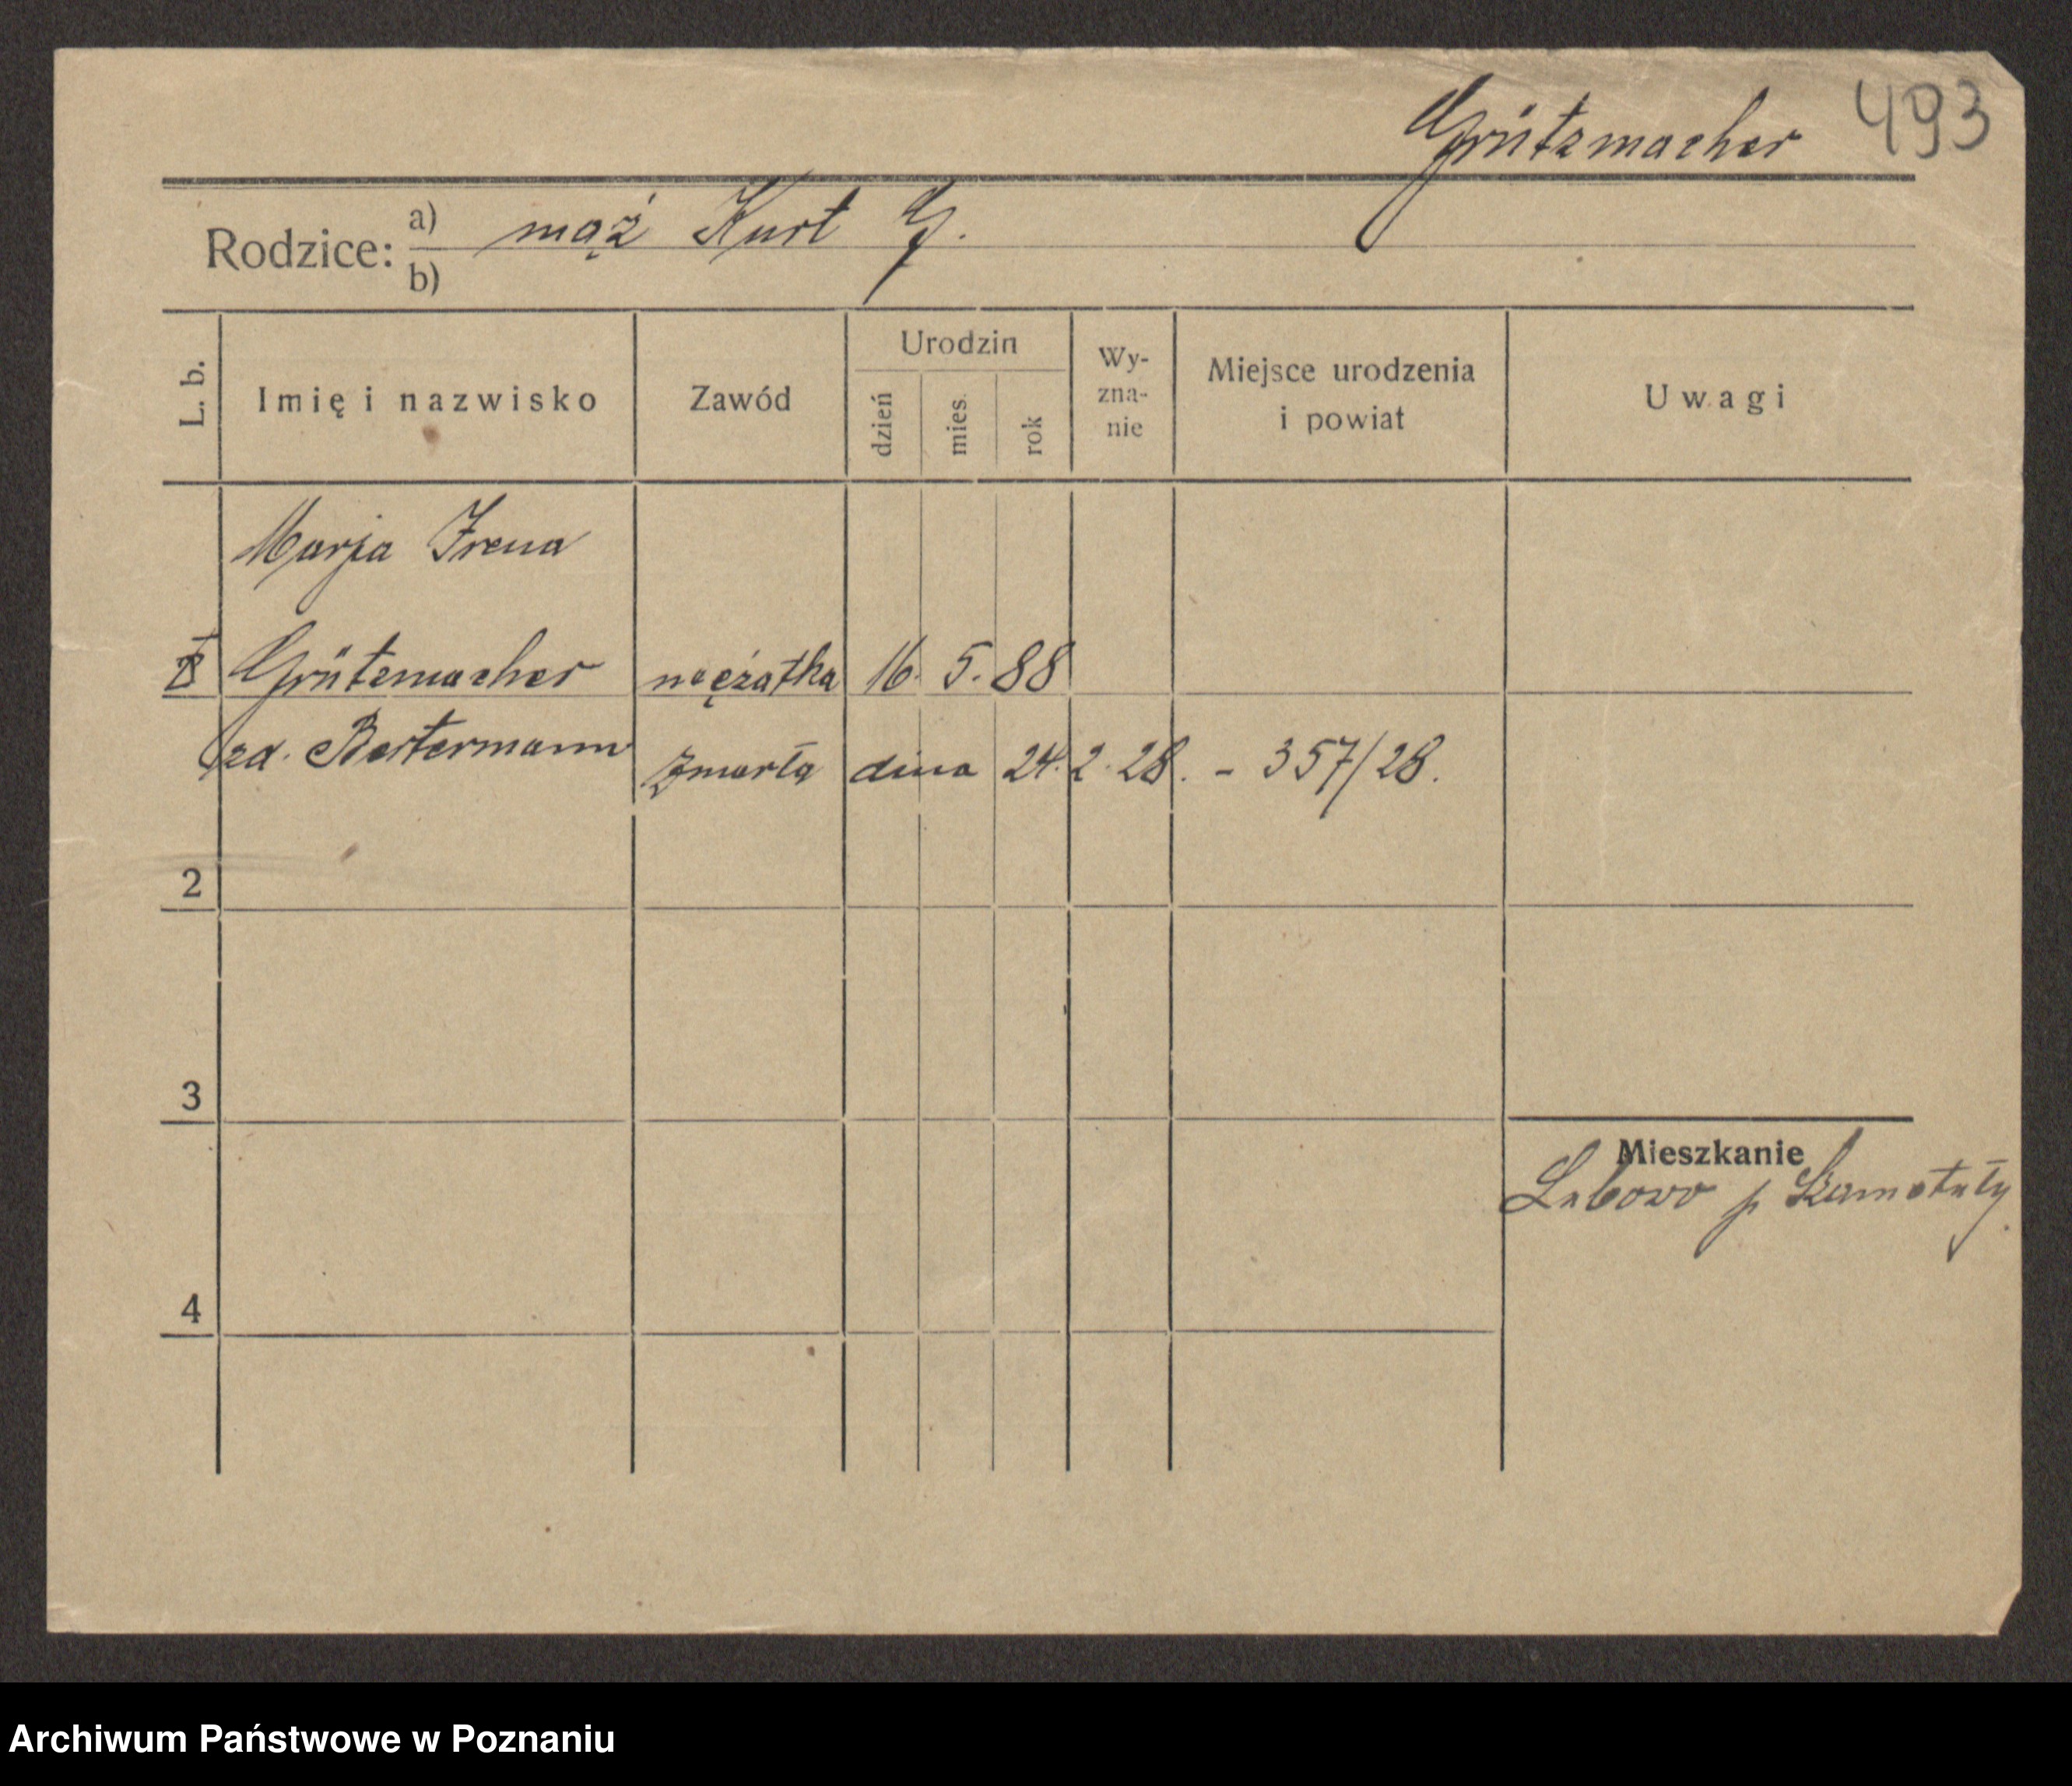 Grützmacher 493
Rodzice: a) mąż Kurt G.
b)
L. b. Imię i nazwisko Zawód Urodzin dzień mies. rok Wy-zna-nie Miejsce urodzenia i powiat Uwagi
Marja Irena
Grützmacher mężatka 16. 5. 88
zd. Bestermann zmarła dnia 24. 2. 28. - 357/28.
2
3
Mieszkanie
Lubowo p Szamotuły
4
Archiwum Państwowe w Poznaniu